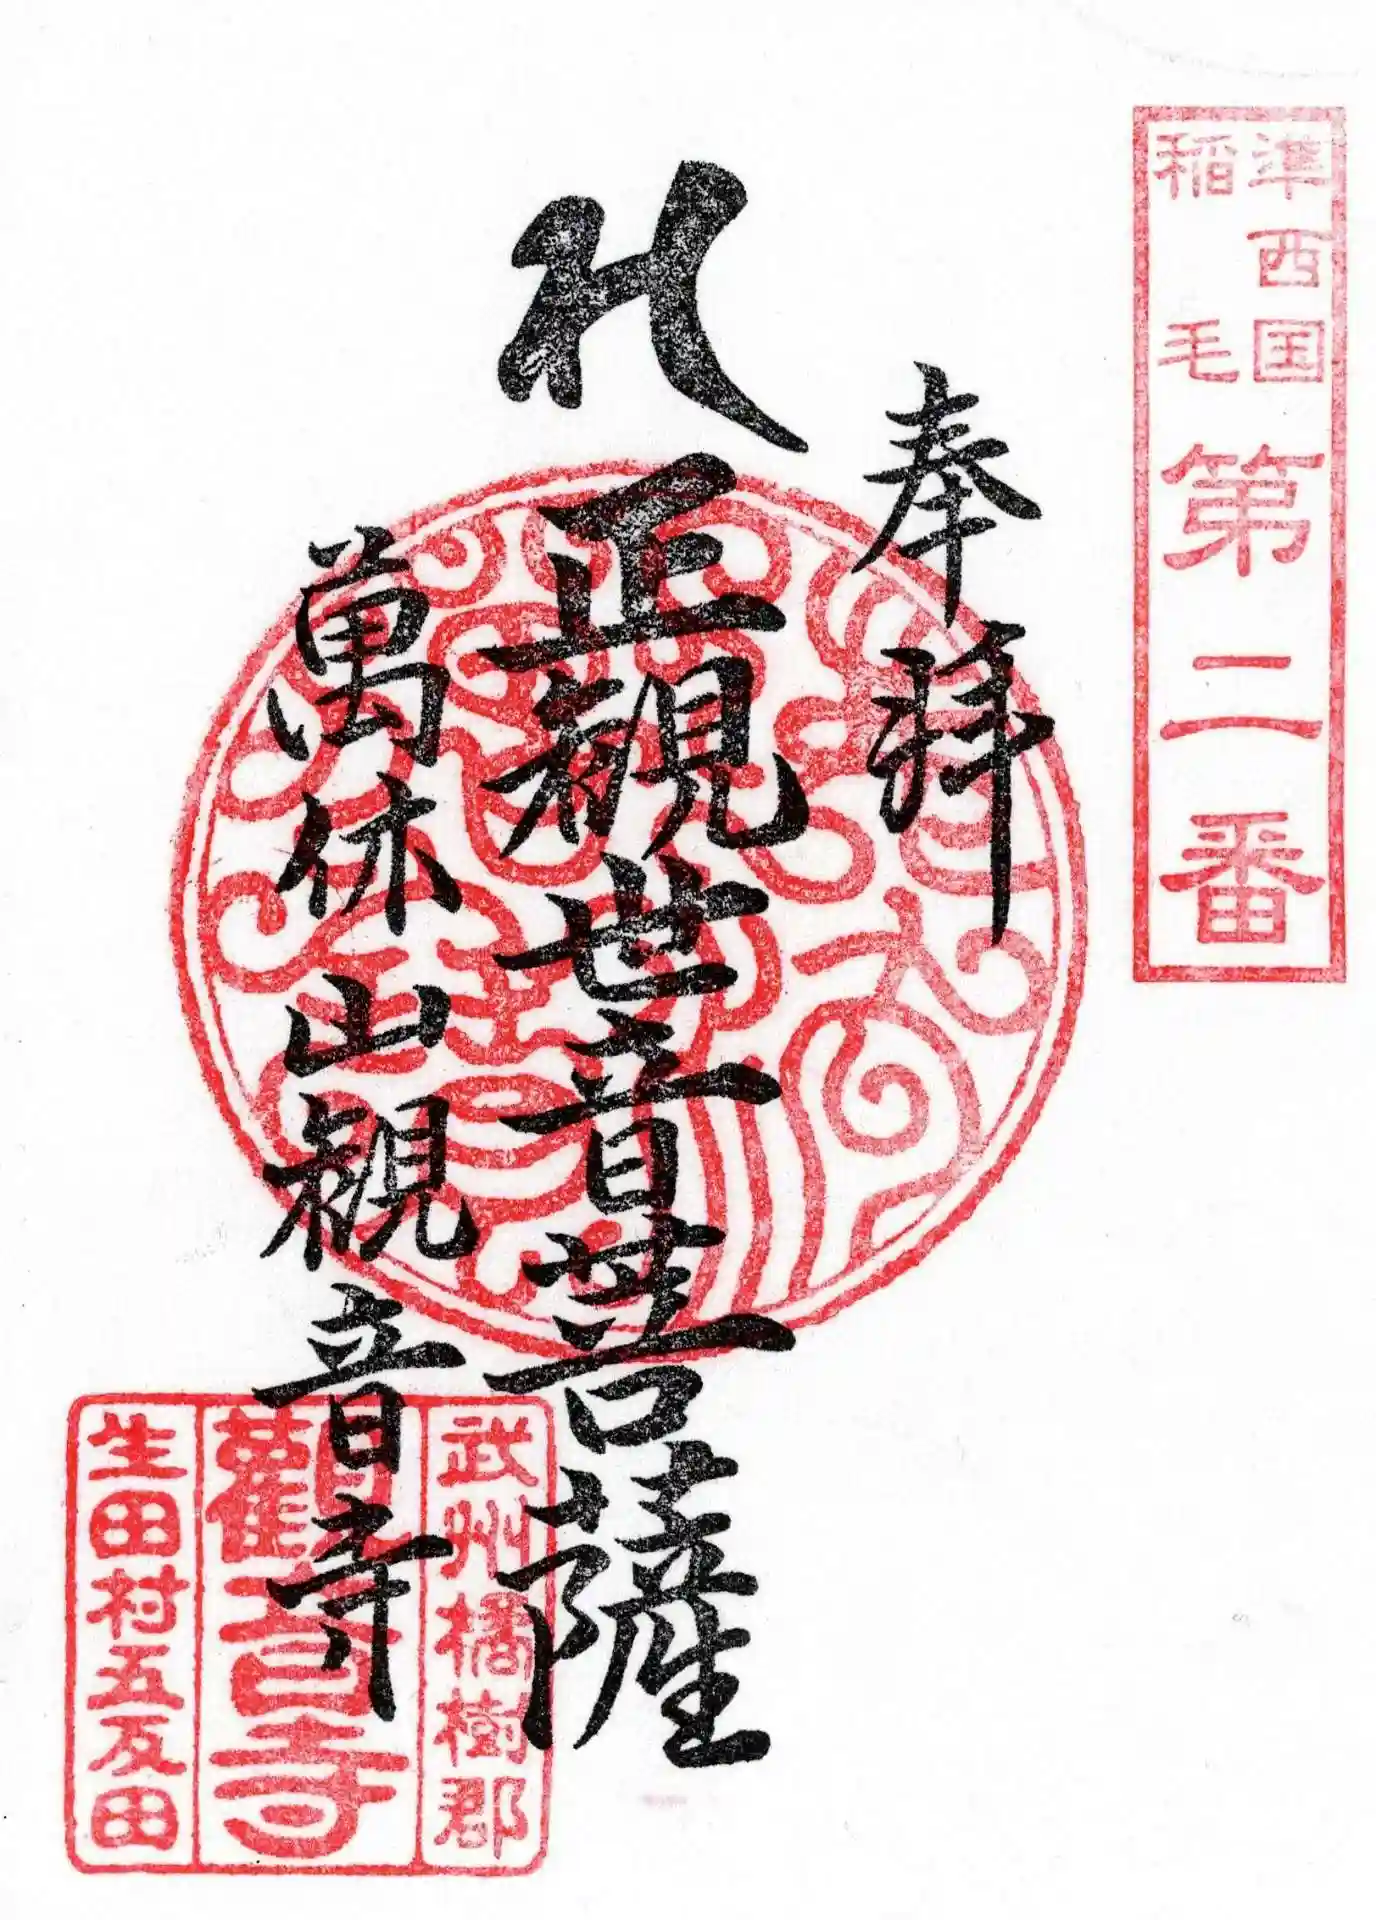 準西国
稲毛
第二番
奉拝
正観世音菩薩
萬休山観音寺
武州橘樹郡
観音寺
生田村五反田